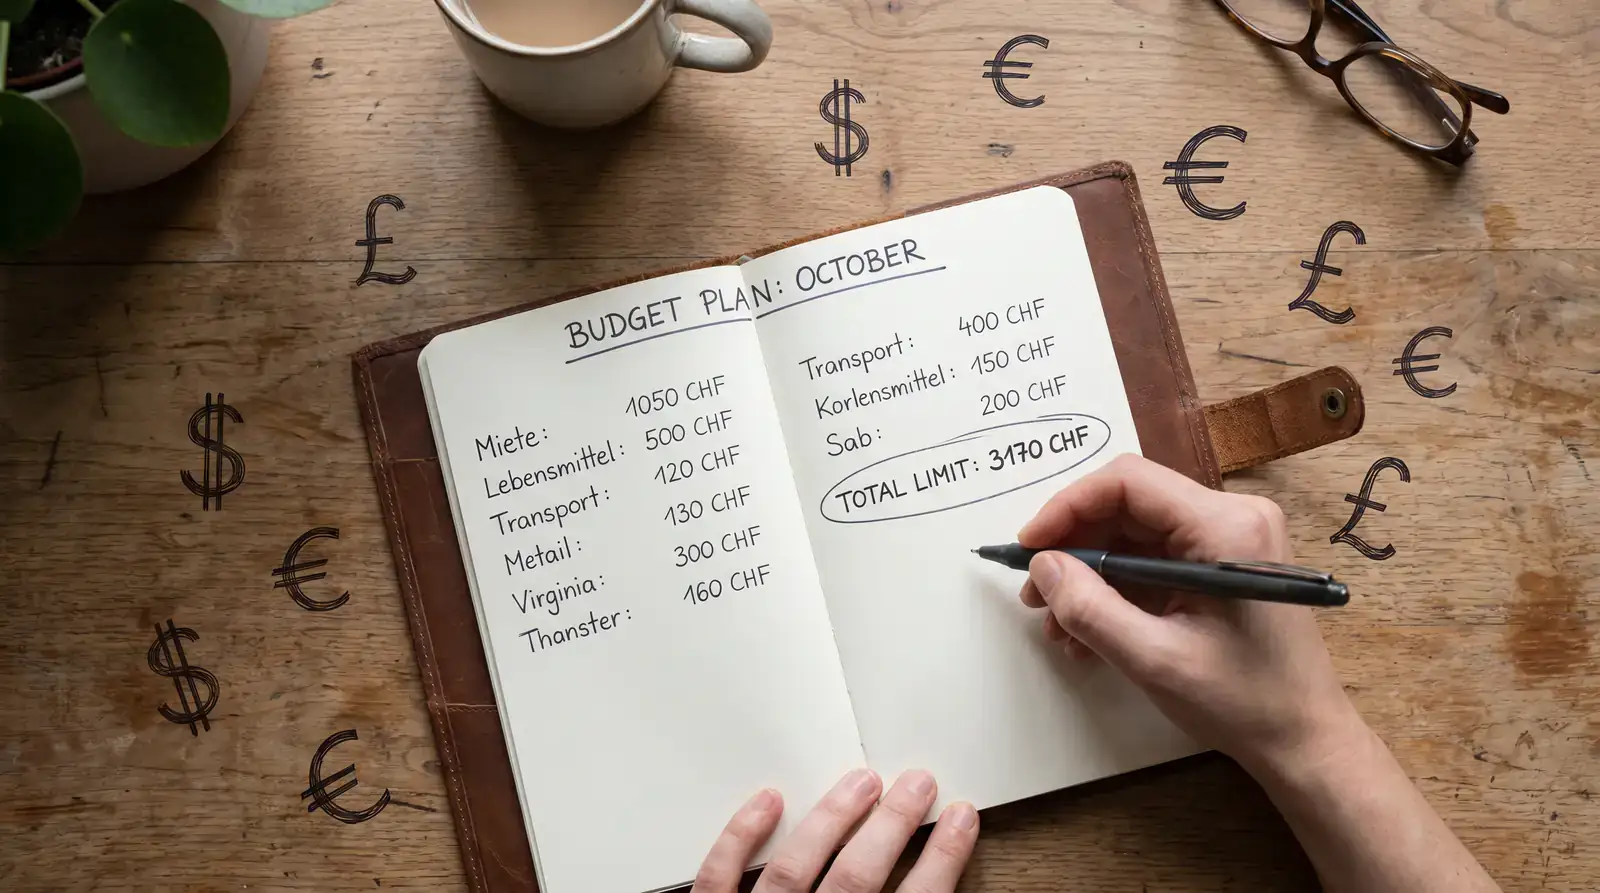 BUDGET PLAN: OCTOBER
Miete: 1050 CHF
Lebensmittel: 500 CHF
Transport: 120 CHF
Metail: 130 CHF
Virginia: 300 CHF
Thanster: 160 CHF
Transport: 400 CHF
Korlensmittel: 150 CHF
Sab: 200 CHF
TOTAL LIMIT: 3170 CHF
£
$
€
$
€
$
€
€
£
€
£